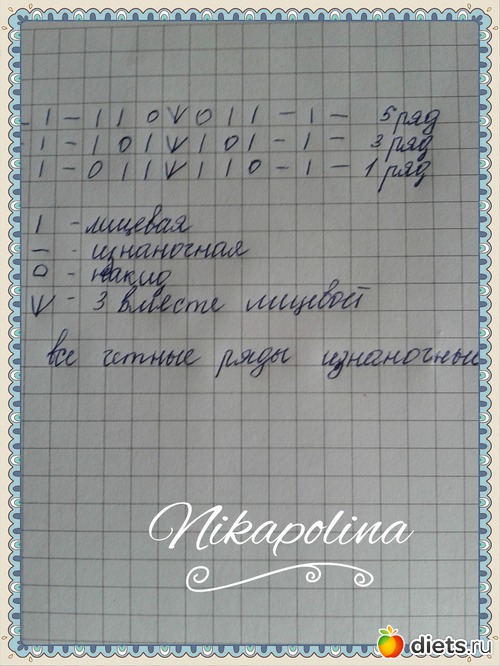 - | - | | 0 V 0 | | - | - 5 ряд
- | - | 0 | V | 0 | - | - 3 ряд
- | - 0 | | V | | 0 - | - 1 ряд
| - лицевая
— - изнаночная
0 - накид
V - 3 вместе лицевой
все четные ряды изнаночные
Nikapolina
diets.ru